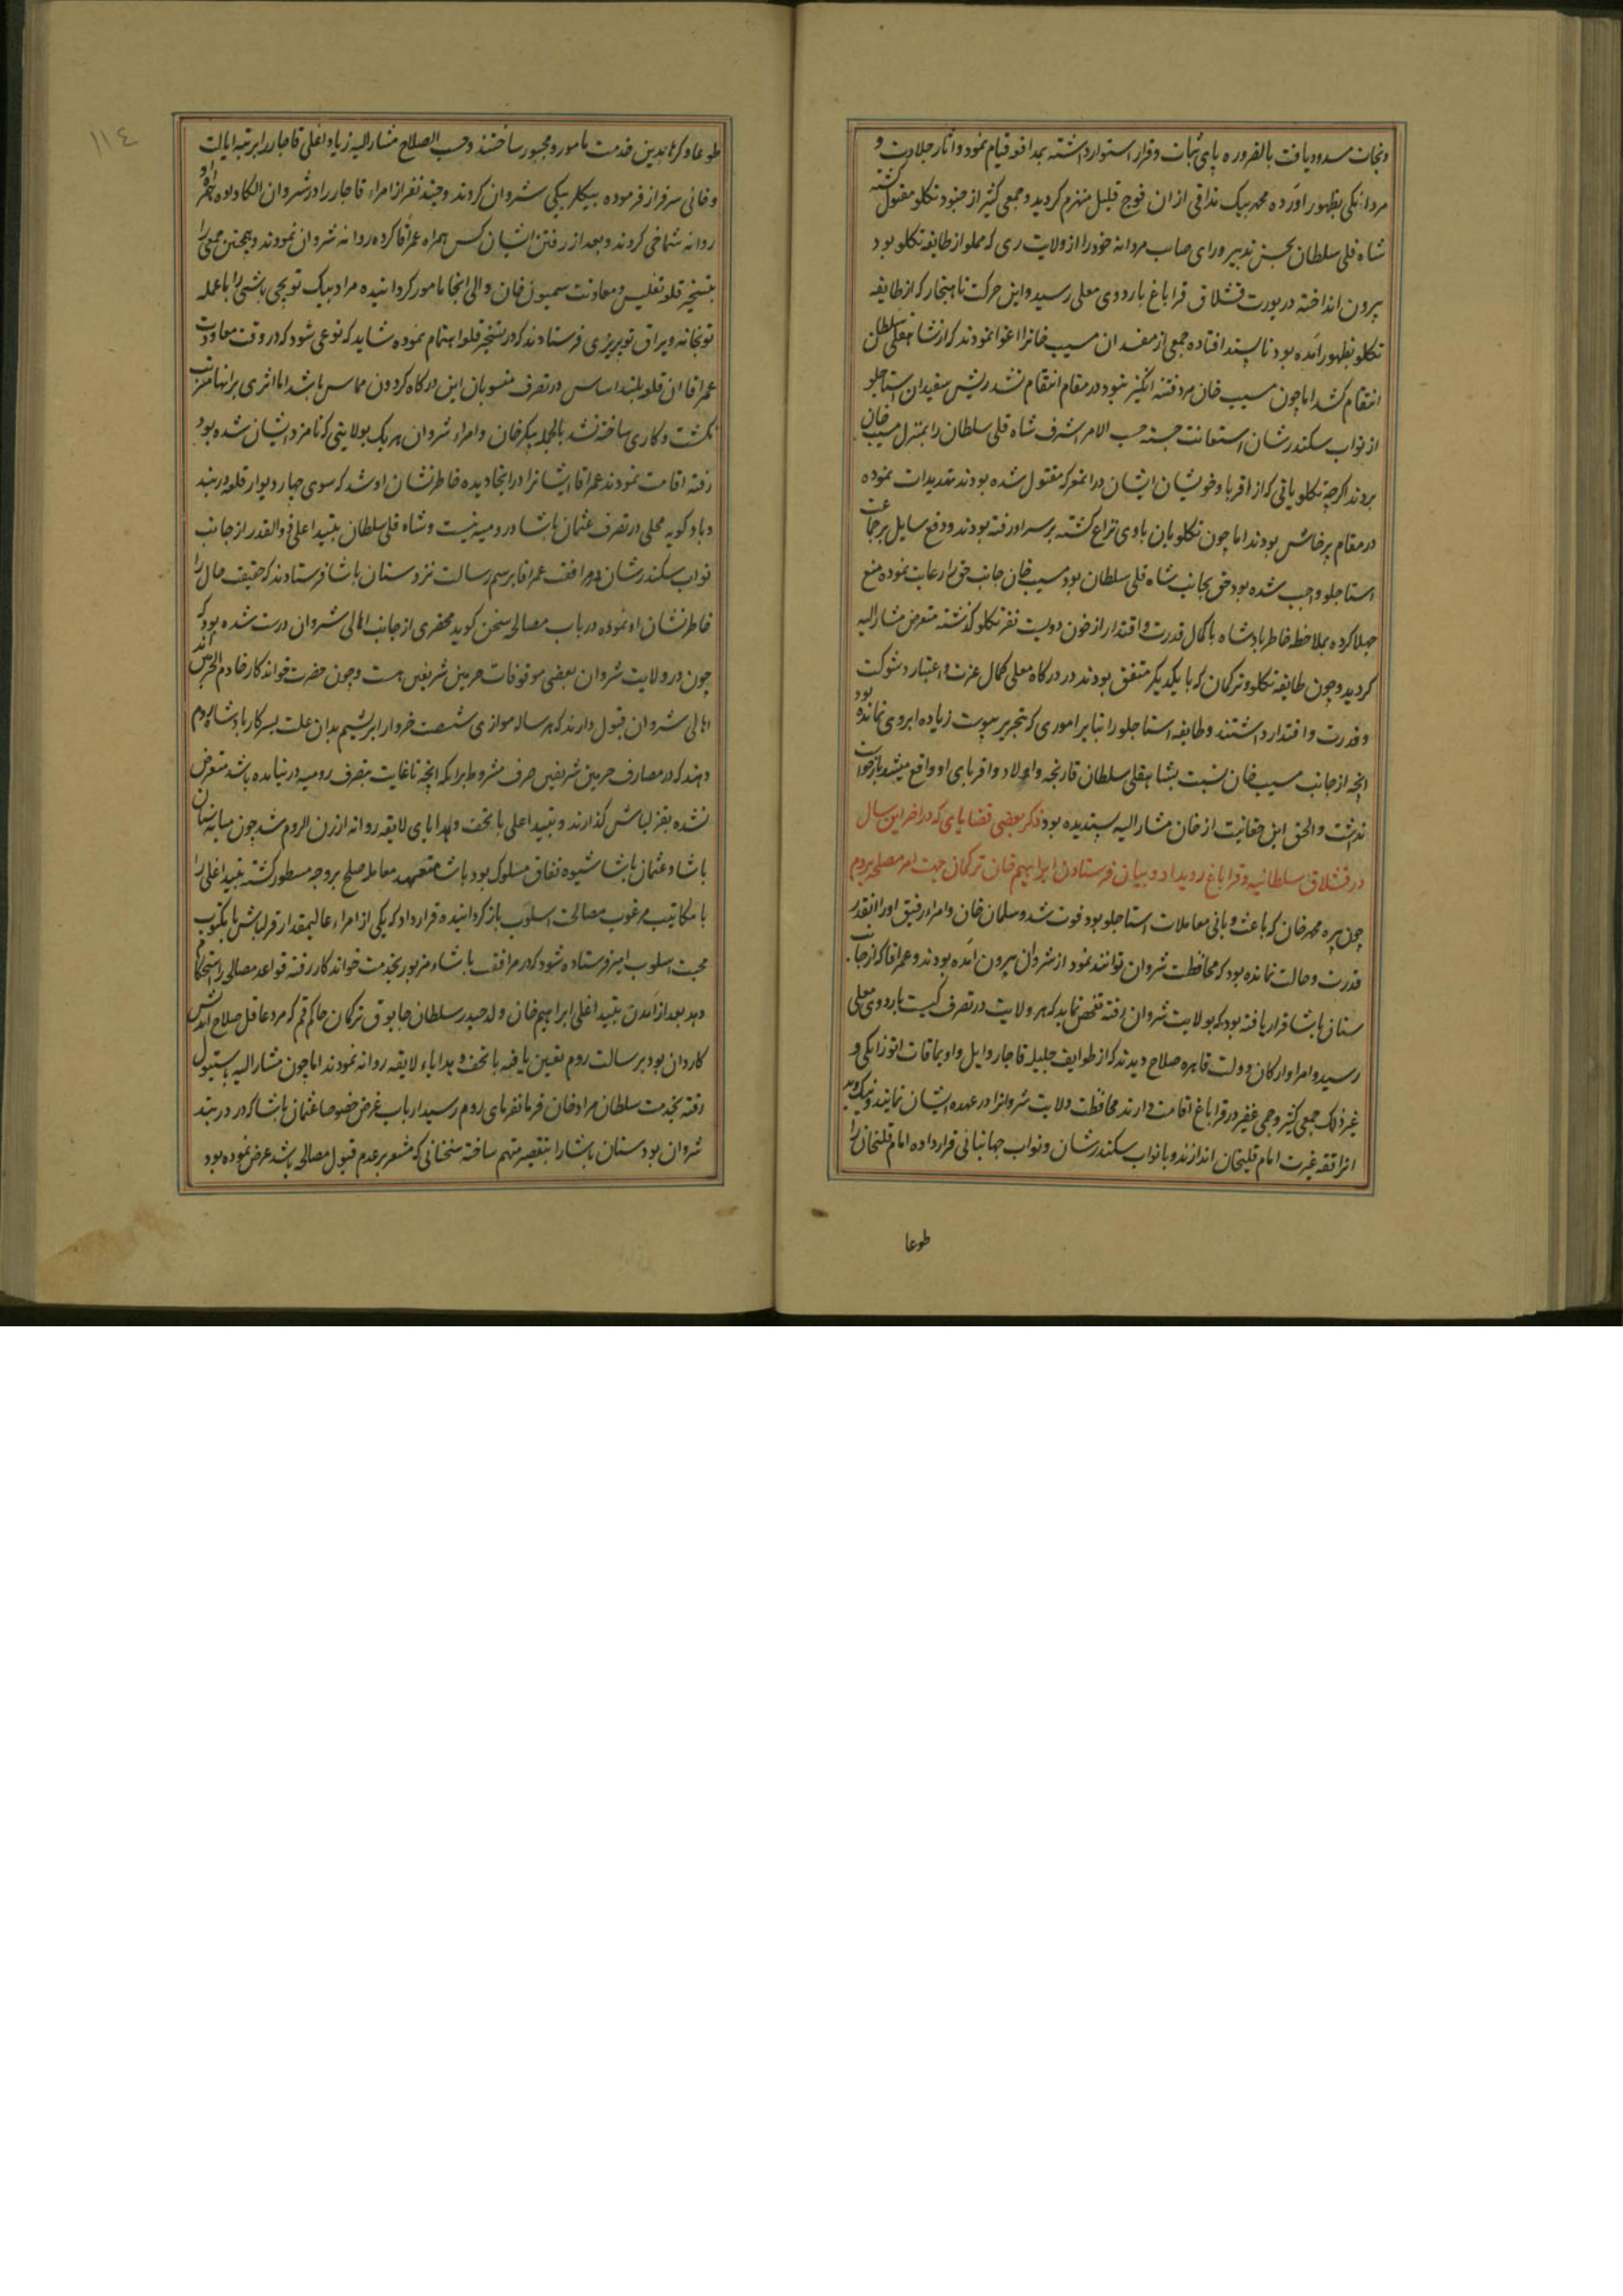 و نجات مسدود یافت بالضروره پای ثبات و قرار استوار داشته بمدافعه قیام نمود و اثار جلادت و
مردانکی بظهور اورده محمد بیک مذاقی از ان فوج قلیل منهزم کردید و جمعی کثیر از جنود تکلو مقتول کشته
شاه قلی سلطان بحسن تدبیر و رای صایب مردانه خود را از ولایت ری که مملو از طایفه تکلو بود
بیرون انداخته در یورت قشلاق قراباغ باردوی معلی رسید و این حرکت ناهنجار که از طایفه
تکلو بظهور آمده بود ناپسند افتاده جمعی از مفسدان مسیب خانرا اغوا نمودند که از شاهقلی سلطان
انتقام کشد اما چون مسیب خان مرد فتنه انگیز نبود در مقام انتقام نشد ریش سفیدان استاجلو
از نواب سکندرشان استعانت جسته حسب الامر اشرف شاه قلی سلطان را بمنزل مسیب خان
بردند اکرچه تکلو یاقی که از اقربا و خویشان ایشان در انمعرکه مقتول شده بودند تهدیدات نموده
در مقام پرخاش بودند اما چون تکلویان باوی نزاع کشته بر سر او رفته بودند و دفع سایل بر جماعت
استاجلو واجب شده بود حق بجانب شاه قلی سلطان بود مسیب خان جانب حق را رعایت نموده منع
جهلا کرده بملاحظه خاطر پادشاه با کمال قدرت و اقتدار از خون دویست نفر تکلو کذشته متعرض مشارالیه
کردید و چون طایفه تکلو و ترکمان که با یکدیکر متفق بودند در درکاه معلی کمال عزت و اعتبار و شوکت
و قدرت و اقتدار داشتند و طایفه استاجلو را بنابر اموری که بتحریر پیوست زیاده ابروی نمانده بود
انچه از جانب مسیب خان نسبت بشاهقلی سلطان قارنجه و اولاد و اقربای او واقع میشد بازخواست
نداشت و الحق این حقانیت از خان مشارالیه پسندیده بود ذکر بعضی قضایای که در اخر این سال
در قشلاق سلطانیه و قراباغ رویداد و بیان فرستادن ابراهیم خان ترکمان جهت امر مصلحه بروم
چون پیره محمد خان که باعث و بانی معاملات استاجلو بود فوت شد و سلمان خان و امراء رفیق او را انقدر
قدرت و حالت نمانده بود که محافظت شروان توانند نمود از شروان بیرون آمده بودند و عمر اقا که از جانب
سنان پاشا قرار یافته بود که بولایت شروان رفته تفحص نماید که هر ولایت در تصرف کیست باردوی معلی
رسید و امرا و ارکان دولت قاهره صلاح دیدند که از طوایف جلیله قاجار و ایل و اویماقات اتوزایکی و
غیر ذلک جمعی کثیر و جمی غفیر در قراباغ اقامت دارند محافظت ولایت شروانرا در عهده ایشان نمایند
امام قلیخان اندازند و با نواب سکندرشان و نواب جهانبانی قرار داده امام قلیخان را
طوعا
١١٤
طوعا و کرها بدین خدمت مامور و مجبور ساختند و حسب الصلاح مشارالیه زیاد اغلی قاجار را برتبه ایالت
و خانی سرفراز فرموده بیکلربیکی شروان کردند و چند نفر از امراء قاجار را در شروان الکا داده
روانه شماخی کردند و بعد از رفتن ایشان کس همراه عمر اقا کرده روانه شروان نمودند و همچنین جمعی را
بتسخیر قلعه تفلیس و معاونت سمیون خان والی انجا مامور کردانیده مراد بیک توپچی باشی را با عمله
توپخانه و یراق توپ‌ریزی فرستادند که در تسخیر قلعه اهتمام نموده شاید که نوعی شود که در وقت معاودت
عمر اقا ان قلعه بلند اساس در تصرف منسوبان این درکاه کردون مماس باشد اما اثری بر انها مترتب
نکشت و کاری ساخته نشد بالجمله پیکر خان و امراء شروان هر یک بولایتی که نامزد ایشان شده بود
رفته اقامت نمودند عمر اقا ایشانرا در انجا دیده خاطرنشان او شد که سوی چهار دیوار قلعه دربند
و بادکوبه محلی در تصرف عثمان پاشا و رومیه نیست و شاه قلی سلطان یتید اغلی ذوالقدر از جانب
نواب سکندرشان بمرافقت عمر اقا برسم رسالت نزد سنان پاشا فرستادند که حقیقت حال را
خاطرنشان او نموده در باب مصالحه سخن کوید محضری از جانب اهالی شروان درست شده بود که
چون در ولایت شروان بعضی موقوفات حرمین شریفین هست و چون حضرت خواندکار خادم الحرمین اند
اهالی شروان قبول دارند که هر ساله موازی شصت خروار ابریشم بدان علت بسرکار پادشاه روم
دهند که در مصارف حرمین شریفین صرف مشروط بر اینکه انچه تا غایت بتصرف رومیه در نیامده باشد متعرض
نشده بقزلباش کذارند و یتید اغلی با تحف و هدایای لایقه روانه ارزن الروم شد چون میانه سنان
پاشا و عثمان پاشا شیوه نفاق مسلوک بود پاشا متعهد معامله صلح بر وجه مسطور کشته یتید اغلی را
با مکاتیب مرغوب مصالحت اسلوب باز کردانیده قرار داد که یکی از امراء عالیمقدار قزلباش با مکتوب
محبت اسلوب امیز فرستاده شود که در مرافقت پاشاء مزبور بخدمت خواندکار رفته قواعد مصالحه را استحکام
دهد بعد از آمدن یتید اغلی ابراهیم خان ولد حیدر سلطان چابوق ترکمان حاکم قم که مرد عاقل صلاح اندیش
کاردان بود برسالت روم تعیین یافته با تحف و هدایاء لایقه روانه نمودند اما چون مشارالیه باستنبول
رفته بخدمت سلطان مراد خان فرمانفرمای روم رسید ارباب غرض خصوصا عثمان پاشا که در دربند
شروان بود سنان پاشا را بتقصیر متهم ساخته سخنانی که مشعر بر عدم قبول مصالحه باشد عرض نموده بود